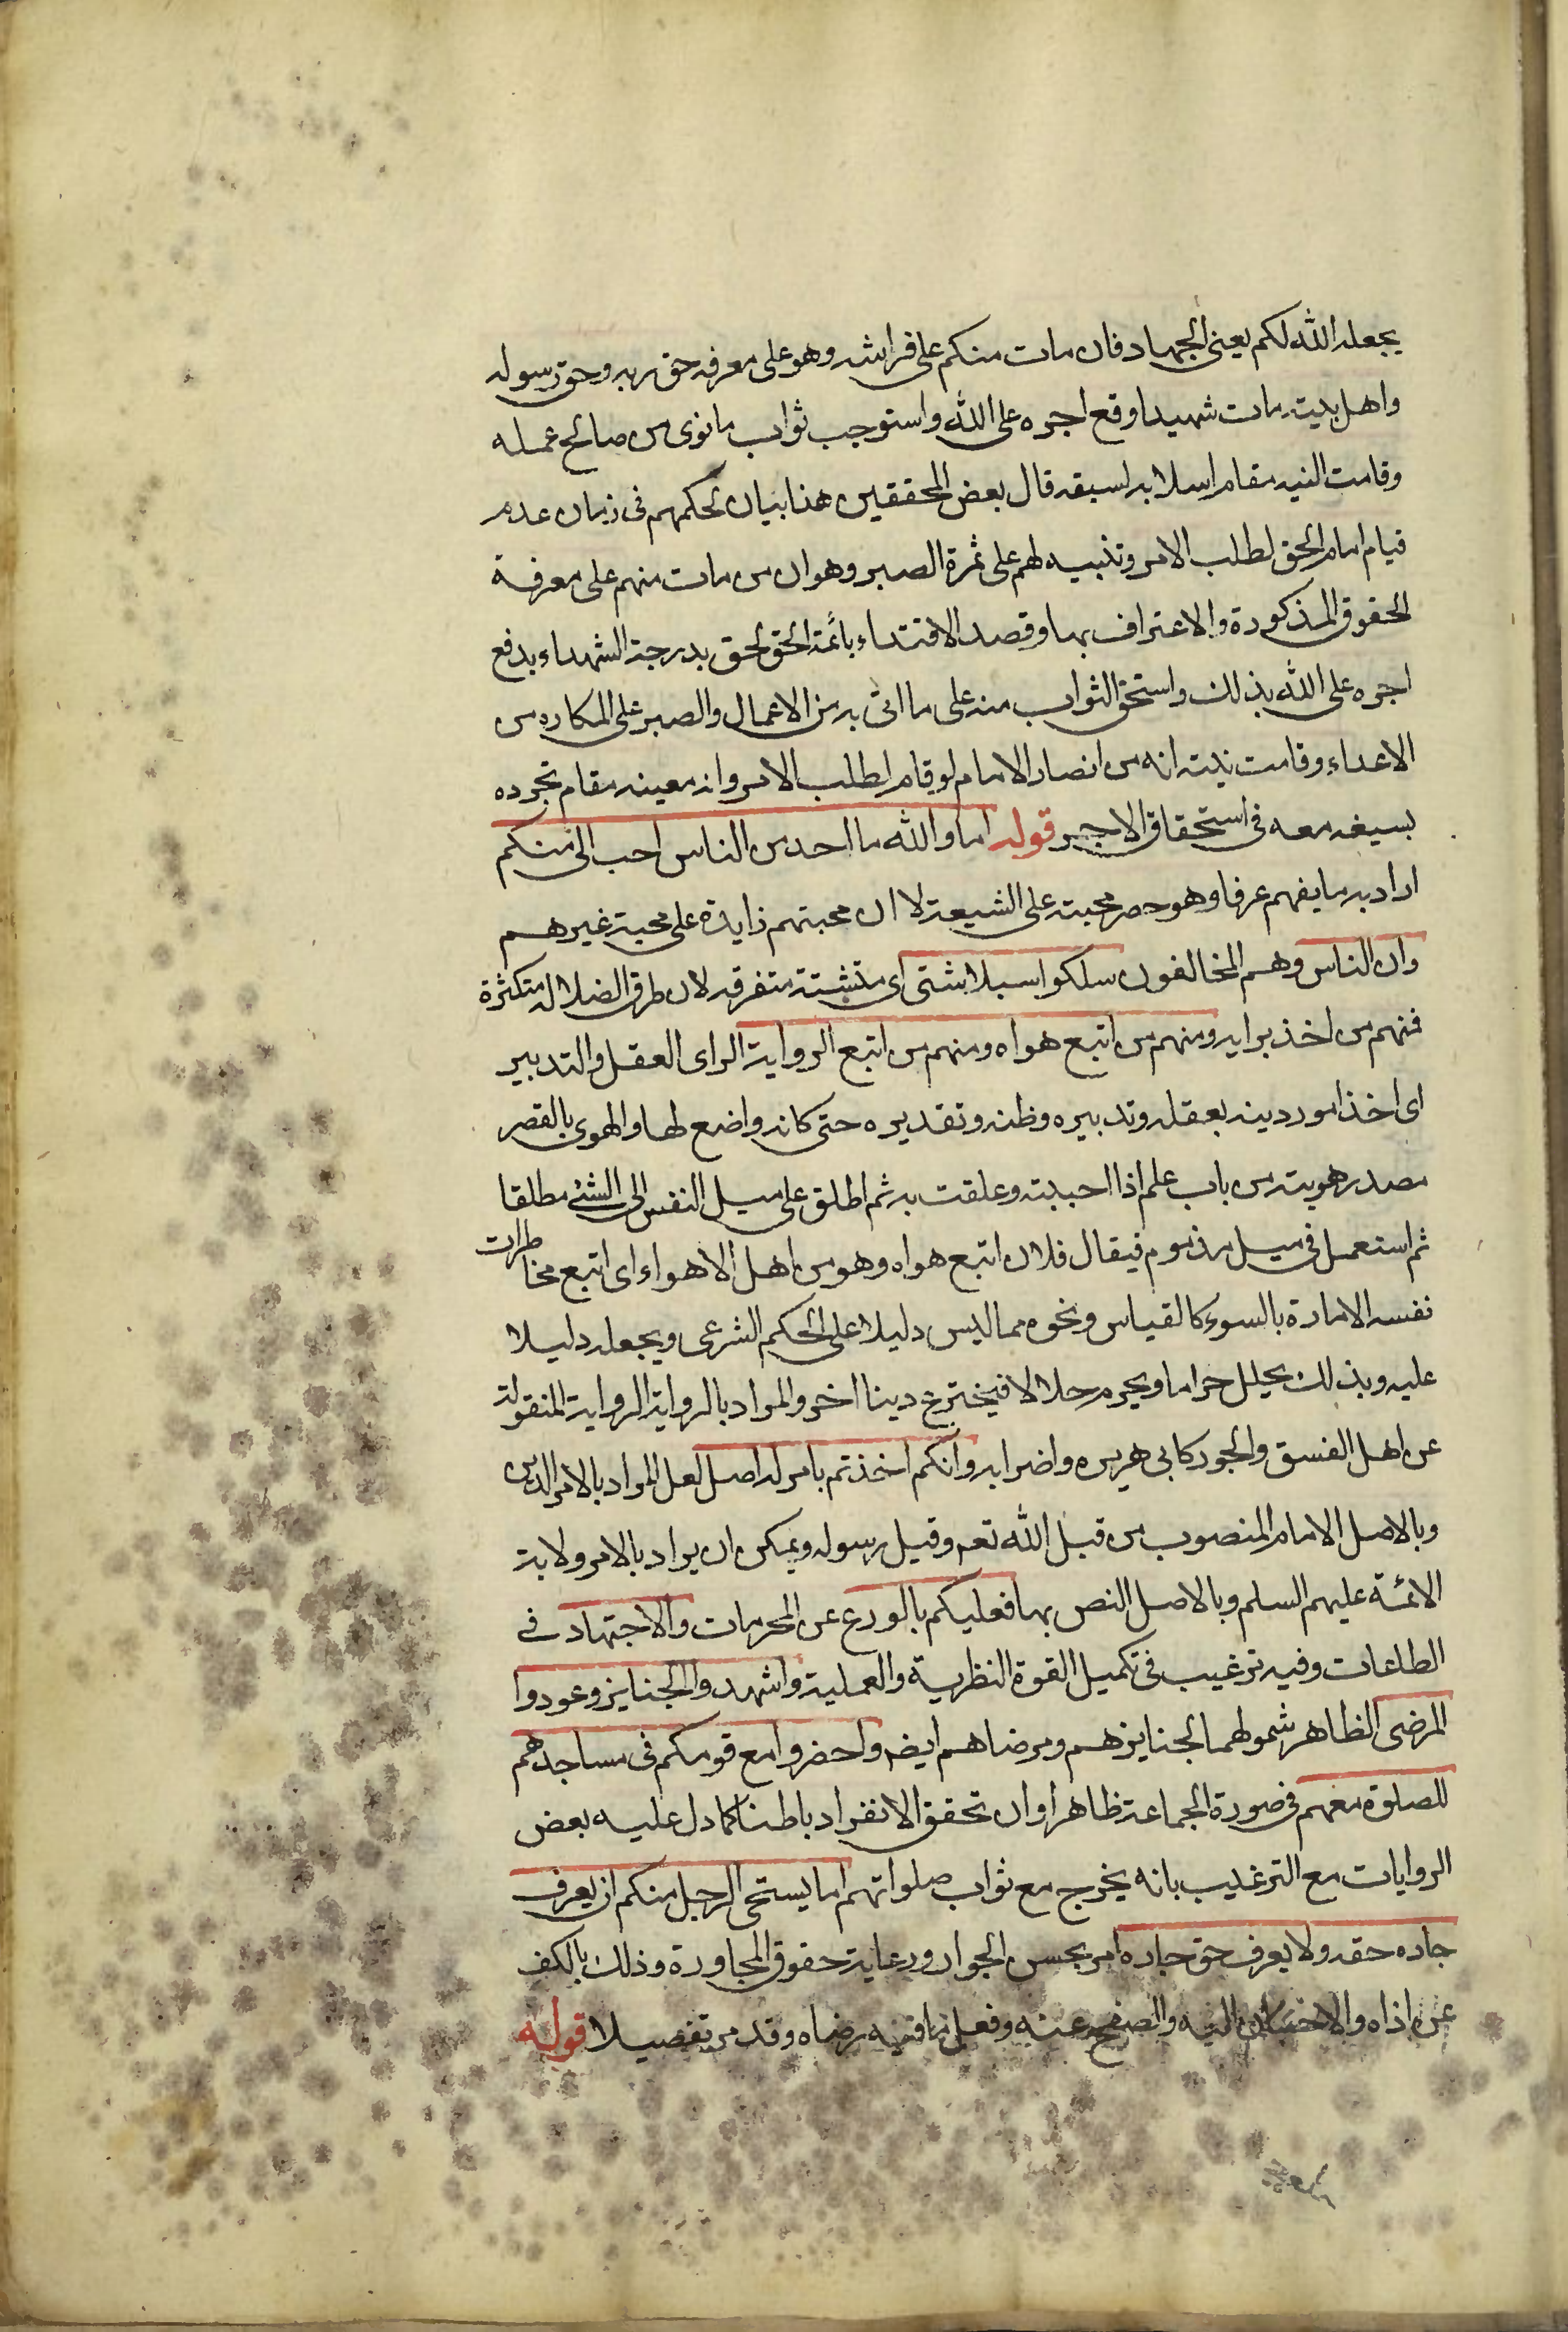 يجعله الله لكم يعنى الجهاد فان مات منكم على فراشه وهو على معرفه حق ربه وحق رسوله
واهل بيته مات شهيدا وقع اجره على الله واستوجب ثواب ما نوى من صالح عمله
وقامت النيه مقام اسلابه لسيفه قال بعض المحققين هذا بيان لحكمهم فى زمان عدم
قيام امام الحق لطلب الامر وتنبيه لهم على ثمرة الصبر وهو ان من مات منهم على معرفة
الحقوق المذكورة والاعتراف بها وقصد الاقتداء بائمة الحق لحق بدرجة الشهداء بدفع
اجره على الله بذلك واستحق الثواب منه على ما اتى به من الاعمال والصبر على المكاره من
الاعداء وقامت نيته انه من انصار الامام لو قام لطلب الامر وانه معينه مقام تجرده
بسيفه معه فى استحقاق الاجر قوله اما والله ما احد من الناس احب الى منكم
اراد به ما يفهم عرفا وهو حصر محبته على الشيعة لا ان محبتهم زايدة على محبة غيرهم
وان الناس وهم المخالفون سلكوا سبلا شتى اى متشتتة متفرقه لان طرق الضلالة متكثرة
فمنهم من اخذ برايه ومنهم من اتبع هواه ومنهم من اتبع الرواية الراى العقل والتدبير
اى اخذ امور دينه بعقله وتدبيره وظنه وتقديره حتى كانه واضع لها والهوى بالقصر
مصدر هويته من باب علم اذا احببته وعلقت به ثم اطلق على ميل النفس الى الشئ مطلقا
ثم استعمل فى ميل مذموم فيقال فلان اتبع هواه وهو من اهل الاهواء اى اتبع مخاطرات
نفسه الامارة بالسوء كالقياس ونحوه مما ليس دليلا على الحكم الشرعى ويجعله دليلا
عليه وبذلك يحلل حراما ويحرم حلالا فيخترع دينا اخر والمراد بالرواية الرواية المنقولة
عن اهل الفسق والجور كابى هريره واضرابه وانكم اخذتم بامر له اصل لعل المراد بالامر الدين
وبالاصل الامام المنصوب من قبل الله تعم وقبل رسوله ويمكن ان يراد بالامر ولاية
الائمة عليهم السلم وبالاصل النص بها فعليكم بالورع عن المحرمات والاجتهاد فى
الطاعات وفيه ترغيب فى تكميل القوة النظرية والعملية واشهدوا الجنايز وعودوا
المرضى الظاهر شمولهما لجنايزهم ومرضاهم ايضه واحضروا مع قومكم فى مساجدهم
للصلوة معهم فى صورة الجماعة ظاهرا وان تحقق الانفراد باطنا كما دل عليه بعض
الروايات مع الترغيب بانه يخرج مع ثواب صلواتهم اما يستحى الرجل منكم ان يعرف
جاره حقه ولا يعرف حق جاره امر بحسن الجوار ورعاية حقوق المجاورة وذلك بالكف
عن اذاه والاحسان اليه والصفح عنه وفعل ما فيه رضاه وقد مر تفصيلا قوله